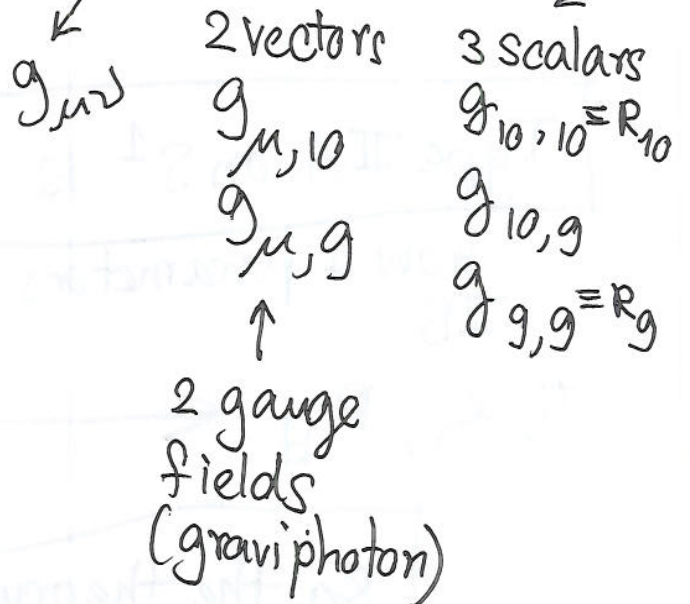 g_μν
2 vectors
g_μ,10
g_μ,9
↑
2 gauge
fields
(graviphoton)
3 scalars
g_10,10 ≡ R_10
g_10,9
g_9,9 ≡ R_9